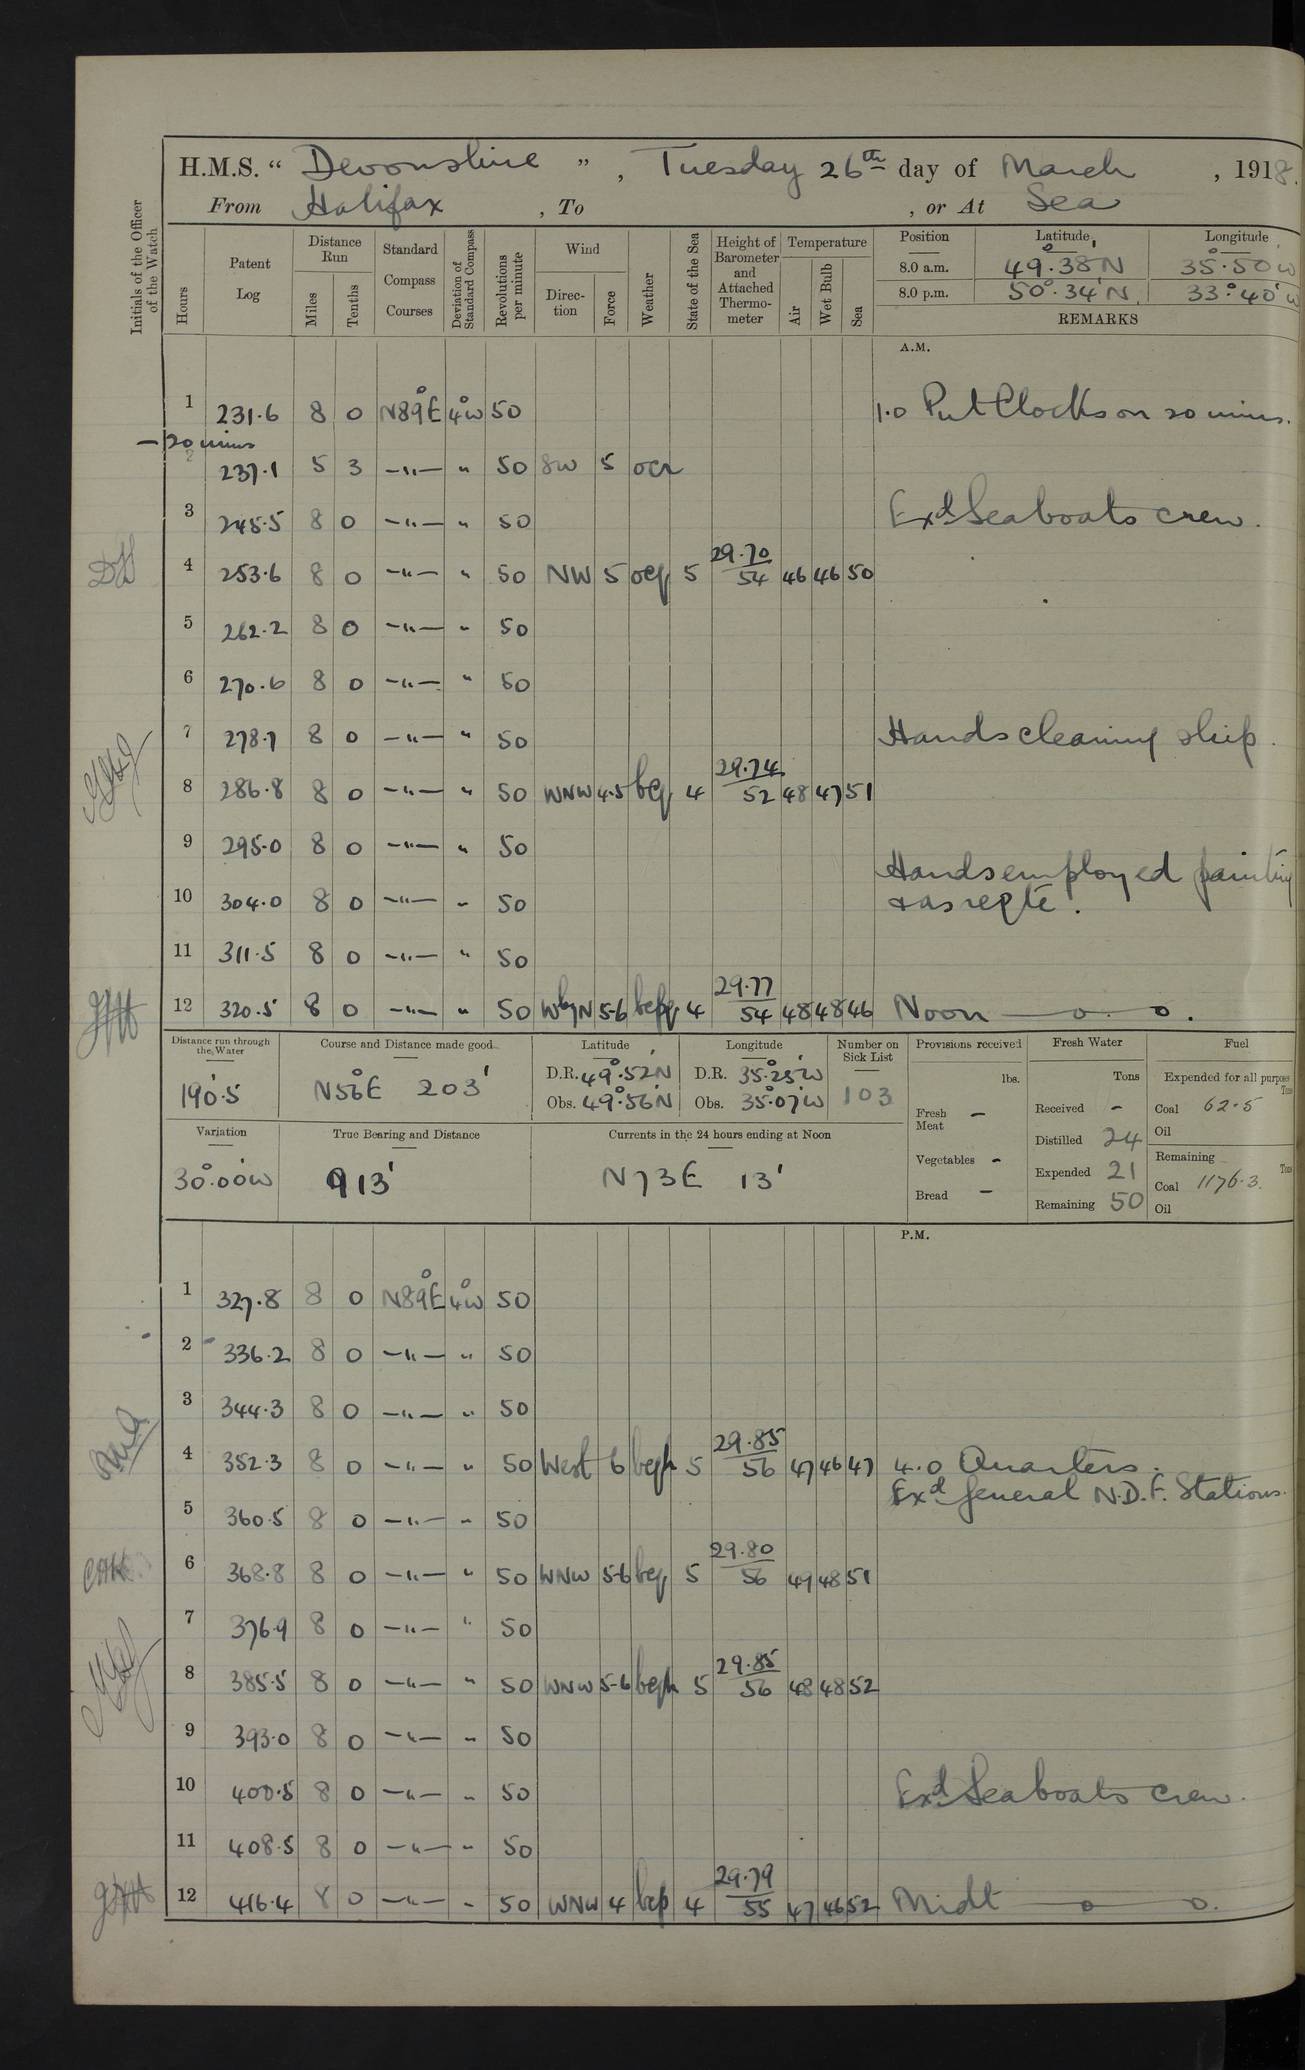 H.M.S. " Devonshire ", Tuesday 26th day of March, 1918.
From Halifax, To , or At Sea
Initials of the Officer of the Watch
Hours
Patent Log
Distance Run
Miles
Tenths
Standard Compass Courses
Deviation of Standard Compass
Revolutions per minute
Wind
Direction
Force
Weather
State of the Sea
Height of Barometer and Attached Thermometer
Temperature
Air
Wet Bulb
Sea
Position Latitude Longitude
8.0 a.m. 49°.38'N 35°.50'W
8.0 p.m. 50°.34'N. 33°.40'W
REMARKS
A.M.
1 231.6 8 0 N89°E 4°W 50 1.0 Put Clocks on 20 mins.
— 20 mins
2 237.1 5 3 —"— " 50 SW 5 ocr
3 245.5 8 0 —"— " 50 Exd Seaboats crew.
4 253.6 8 0 —"— " 50 NW 5 ocq 5 29.70/54 46 46 50
5 262.2 8 0 —"— " 50
6 270.6 8 0 —"— " 50
7 278.7 8 0 —"— " 50 Hands cleaning ship.
8 286.8 8 0 —"— " 50 WNW 4.5 bcq 4 29.74/52 48 47 51
9 295.0 8 0 —"— " 50
Hands employed painting
10 304.0 8 0 —"— " 50 & as reqte.
11 311.5 8 0 —"— " 50
12 320.5 8 0 —"— " 50 WbyN 5-6 bcpq 4 29.77/54 48 48 46 Noon —o—o.
Distance run through the Water 190.5'
Course and Distance made good N56°E 203'
Latitude D.R. 49°.52'N Obs. 49°.56'N
Longitude D.R. 35°.25'W Obs. 35°.07'W
Number on Sick List 103
Variation 30°.00'W
True Bearing and Distance 913'
Currents in the 24 hours ending at Noon N73E 13'
Provisions received lbs.
Fresh Meat —
Vegetables —
Bread —
Fresh Water Tons
Received —
Distilled 24
Expended 21
Remaining 50
Fuel
Expended for all purposes Tons
Coal 62.5
Oil
Remaining Tons
Coal 1176.3.
Oil
P.M.
1 327.8 8 0 N89°E 4°W 50
2 336.2 8 0 —"— " 50
3 344.3 8 0 —"— " 50
4 352.3 8 0 —"— " 50 West 6 bcqh 5 29.85/56 47 46 47 4.0 Quarters.
Exd General N.D.F. Stations.
5 360.5 8 0 —"— " 50
6 368.8 8 0 —"— " 50 WNW 5-6 bcq 5 29.80/56 49 48 51
7 376.9 8 0 —"— " 50
8 385.5 8 0 —"— " 50 WNW 5-6 bcqh 5 29.85/56 48 48 52
9 393.0 8 0 —"— " 50
10 400.5 8 0 —"— " 50 Exd Seaboats crew.
11 408.5 8 0 —"— " 50
12 416.4 8 0 —"— " 50 WNW 4 bcp 4 29.79/55 47 46 52 Midt —o—o.